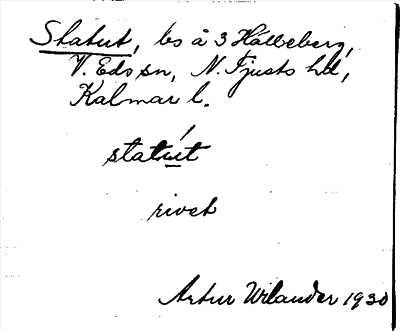 Statut, bs å 3 Hålleberg,
V. Eds sn, N. Tjusts hd,
Kalmar l.
statut
rivet
Artur Wilander 1930